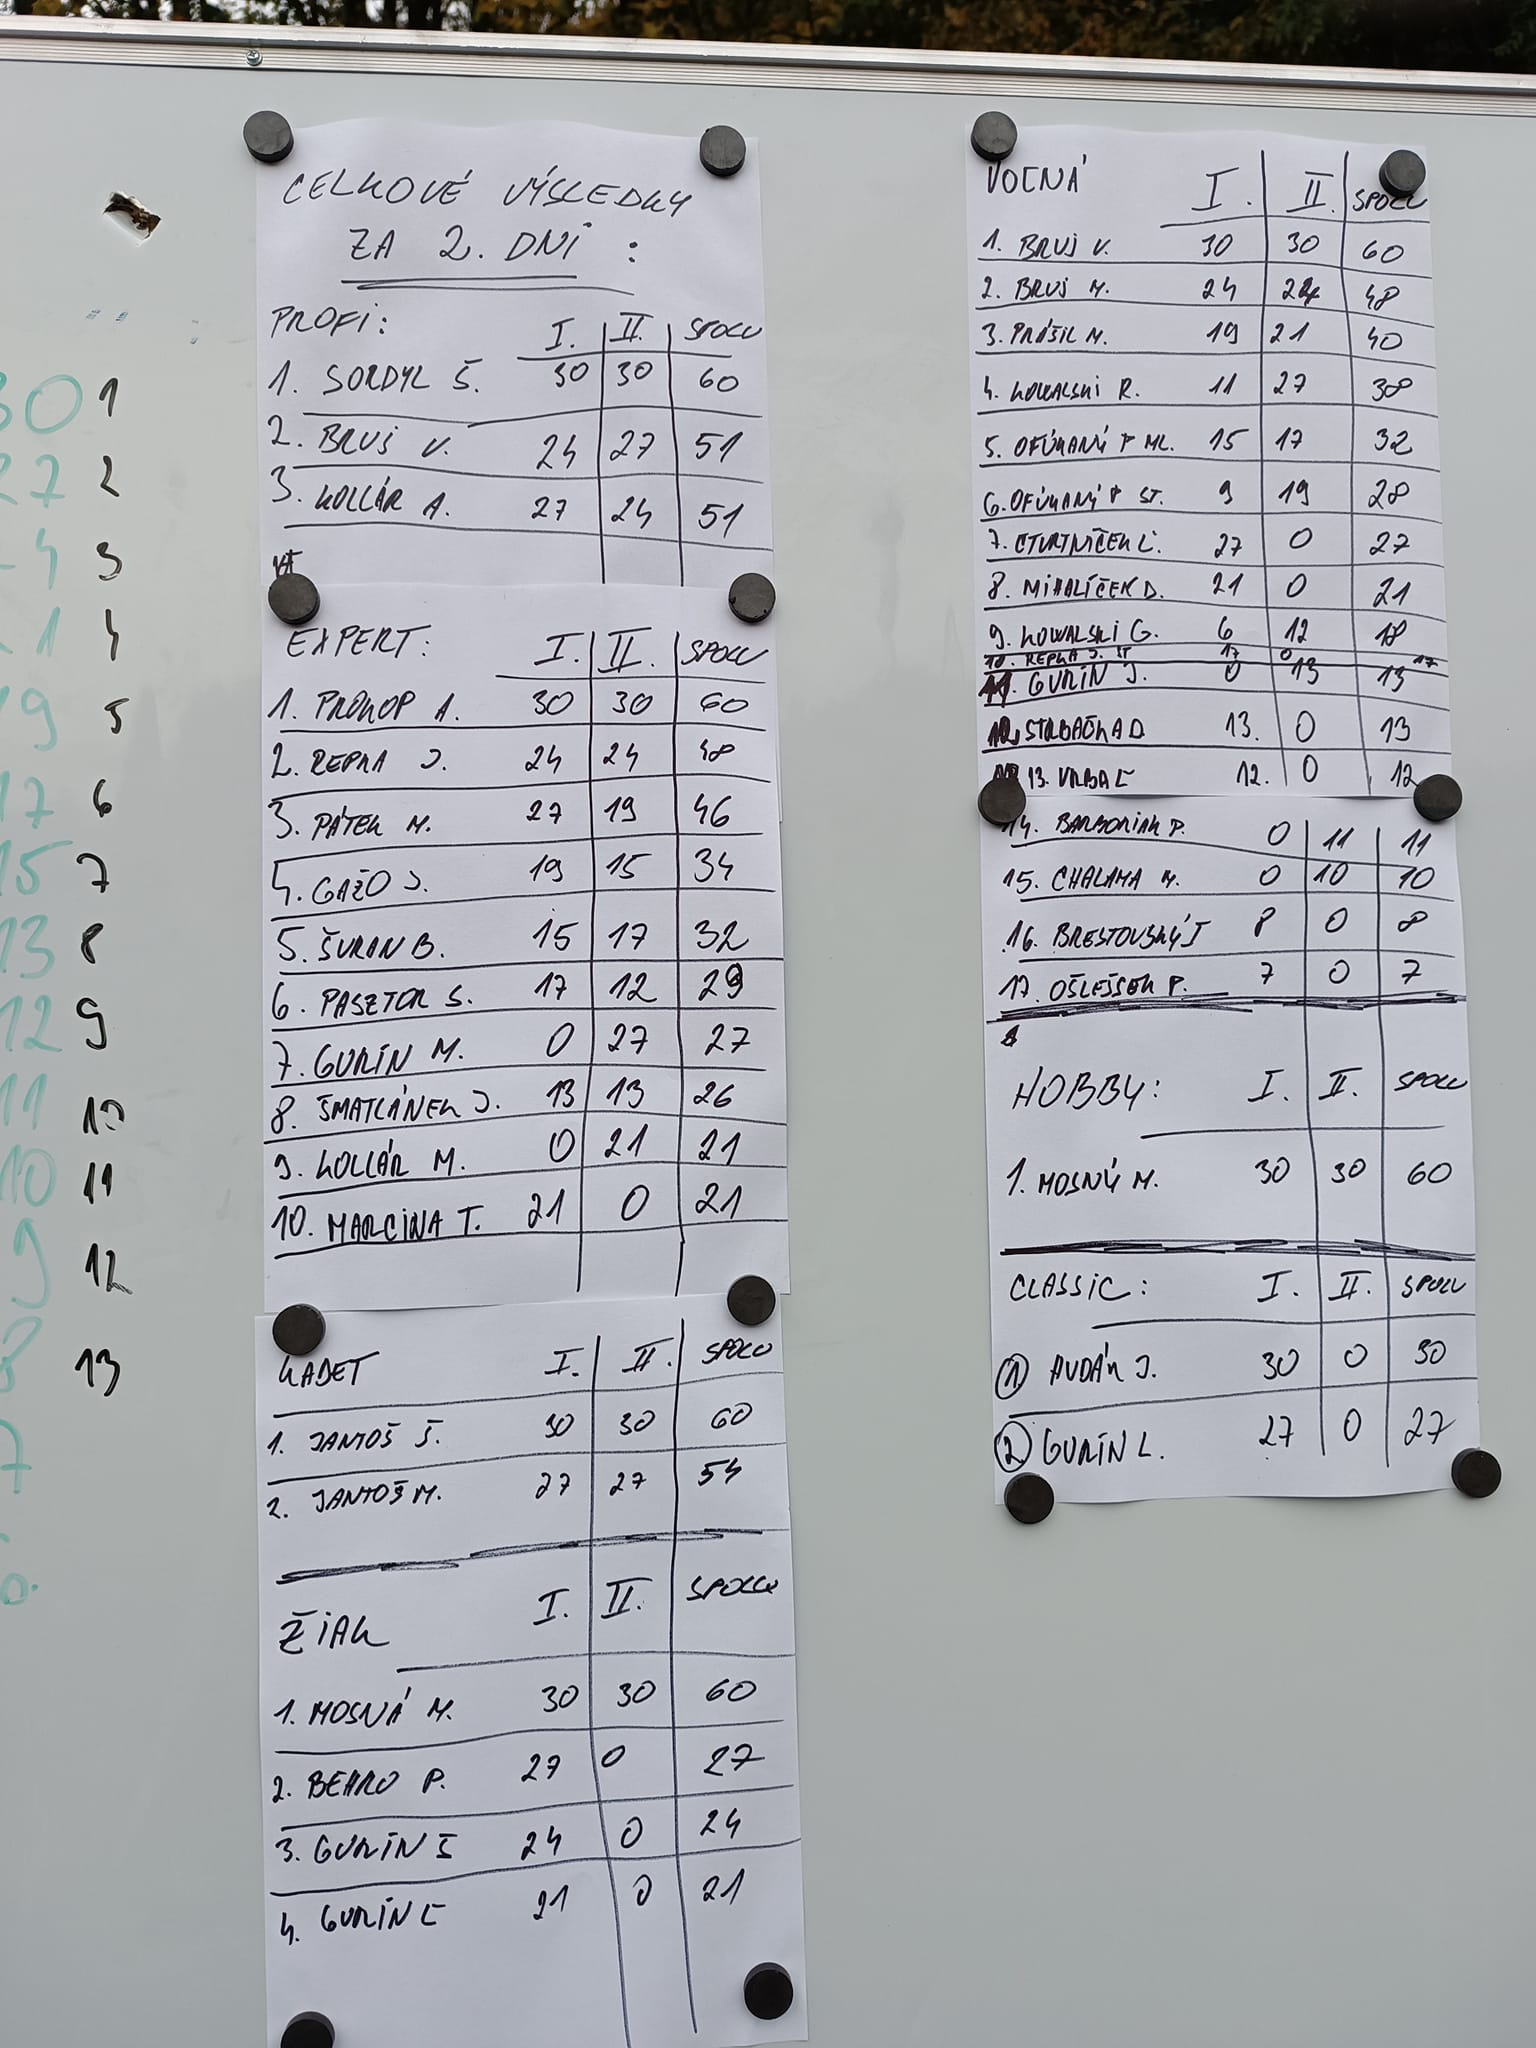 CELKOVÉ VÝSLEDKY
ZA 2. DNI :
PROFI: I. II. SPOLU
1. SORDYL Š. 30 30 60
2. BRUŠ V. 24 27 51
3. KOLLÁR A. 27 24 51
EXPERT: I. II. SPOLU
1. PROKOP A. 30 30 60
2. REPKA J. 24 24 48
3. PÁTEK M. 27 19 46
4. GAŽO J. 19 15 34
5. ŠURAN B. 15 17 32
6. PASZTOR S. 17 12 29
7. GURÍN M. 0 27 27
8. ŠMATLÁNEK J. 13 13 26
9. KOLLÁR M. 0 21 21
10. MARCINA T. 21 0 21
KADET I. II. SPOLU
1. JANTOŠ Š. 30 30 60
2. JANTOŠ M. 27 27 54
ŽIAK I. II. SPOLU
1. MOSNÁ M. 30 30 60
2. BEHRO P. 27 0 27
3. GURÍN Š 24 0 24
4. GURÍN Ľ 21 0 21
VOĽNÁ I. II. SPOLU
1. BRUŠ V. 30 30 60
2. BRUŠ M. 24 24 48
3. PRÁŠIL M. 19 21 40
4. KOWALSKI R. 11 27 38
5. OFÚKANÝ P ML. 15 17 32
6. OFÚKANÝ P ST. 9 19 28
7. CTVRTNÍČEK L. 27 0 27
8. MIHALÍČEK D. 21 0 21
9. KOWALSKI G. 6 12 18
10. REPKA J. ST 17 0 17
11. GURÍN J. 0 13 13
12. STRBAČKA D 13. 0 13
13. VRBA Ľ 12. 0 12
14. BARBORIAK P. 0 11 11
15. CHALAMA M. 0 10 10
16. BRESTOVSKÝ I 8 0 8
17. OŠLEJŠEK P. 7 0 7
HOBBY: I. II. SPOLU
1. MOSNÝ M. 30 30 60
CLASSIC: I. II. SPOLU
1 HUDÁK J. 30 0 30
2 GURÍN L. 27 0 27
30 1
27 2
4 3
1 4
19 5
17 6
15 7
13 8
12 9
11 10
10 11
9 12
8 13
7